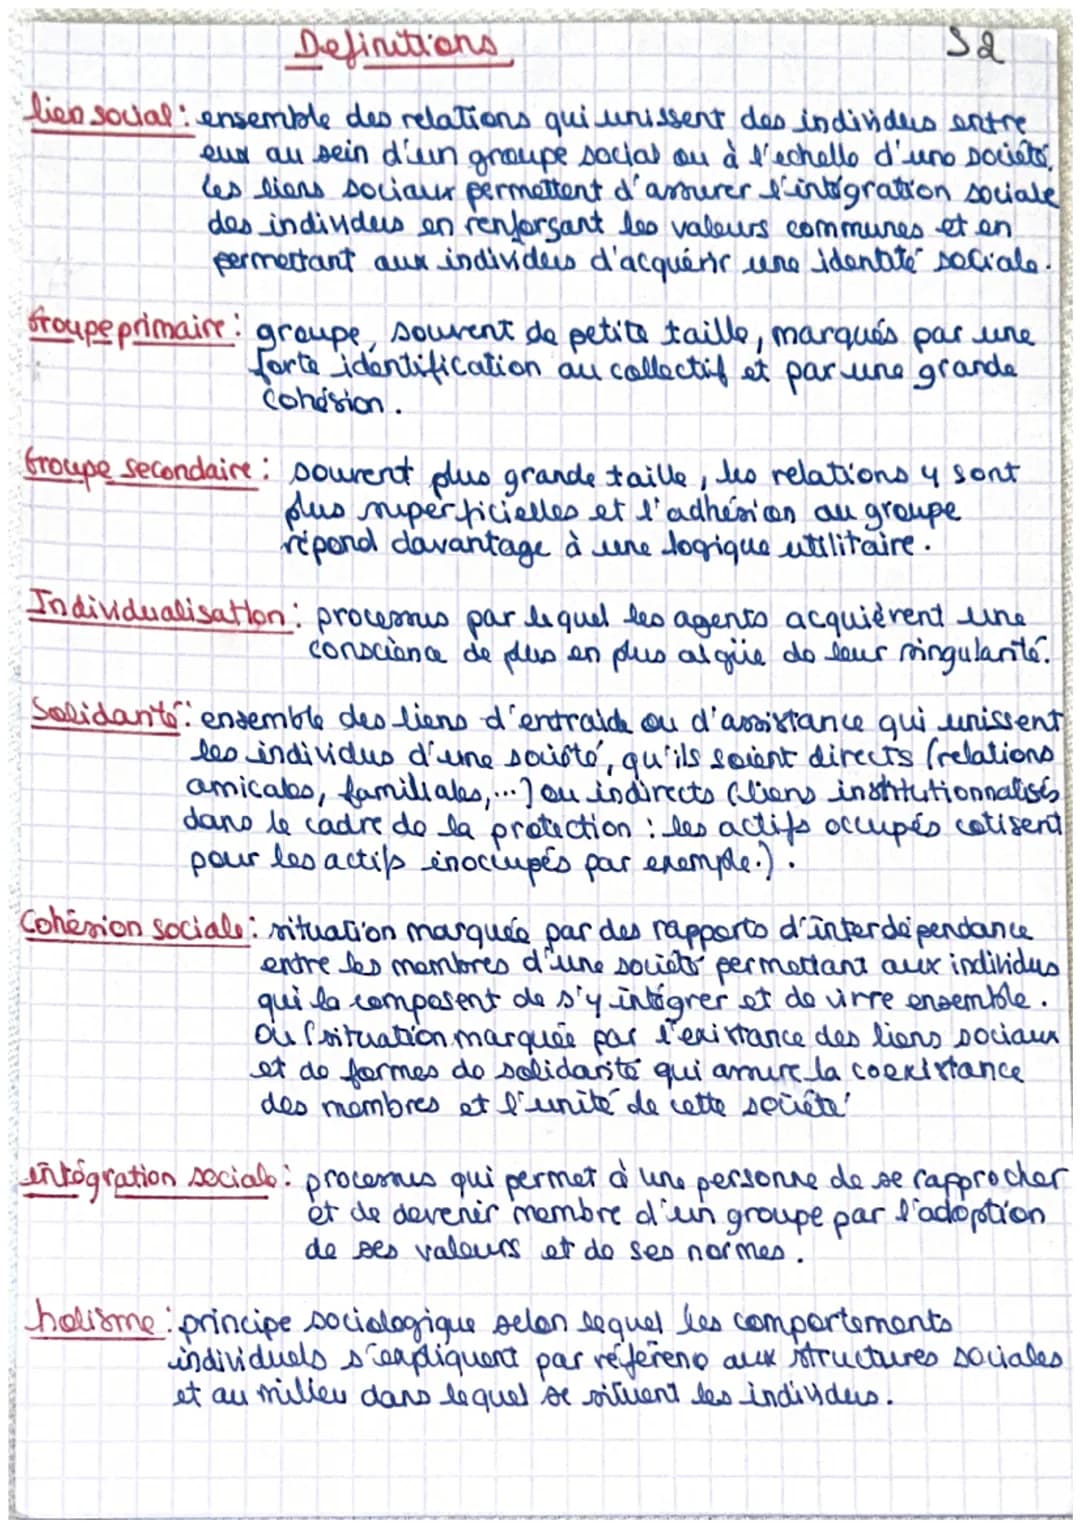 Definitions S2
lien social : ensemble des relations qui unissent des individus entre
eux au sein d'un groupe social ou à l'echelle d'une société.
Les liens sociaux permettent d'assurer l'intégration sociale
des individus en renforçant les valeurs communes et en
permettant aux individus d'acquérir une identité sociale.
Groupe primaire : groupe, souvent de petite taille, marqués par une
forte identification au collectif et par une grande
cohésion.
Groupe secondaire : souvent plus grande taille, les relations y sont
plus superficielles et l'adhésion au groupe
répond davantage à une logique utilitaire.
Individualisation : processus par lequel les agents acquièrent une
conscience de plus en plus aigüe de leur singularité.
Solidarité : ensemble des liens d'entraide ou d'assistance qui unissent
les individus d'une société, qu'ils soient directs (relations
amicales, familiales,...) ou indirects (liens institutionnalisés
dans le cadre de la protection : les actifs occupés cotisent
pour les actifs inoccupés par exemple.).
Cohésion sociale : situation marquée par des rapports d'interdépendance
entre les membres d'une société permettant aux individus
qui la composent de s'y intégrer et de vivre ensemble.
Ou (situation marquée par l'existance des liens sociaux
et de formes de solidarité qui assure la coexistance
des membres et l'unité de cette société
intégration sociale : processus qui permet à une personne de se rapprocher
et de devenir membre d'un groupe par l'adoption
de ses valeurs et de ses normes.
holisme : principe sociologique selon lequel les comportements
individuels s'expliquent par aux structures sociales
et au milieu dans lequel se situent les individus.